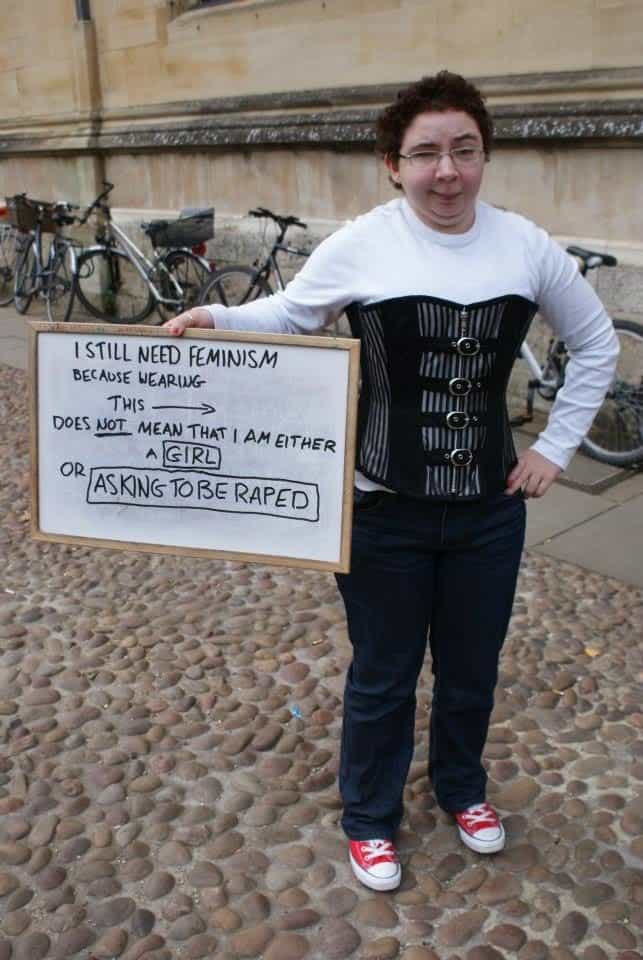 I STILL NEED FEMINISM
BECAUSE WEARING
THIS →
DOES NOT MEAN THAT I AM EITHER
A GIRL
OR ASKING TO BE RAPED